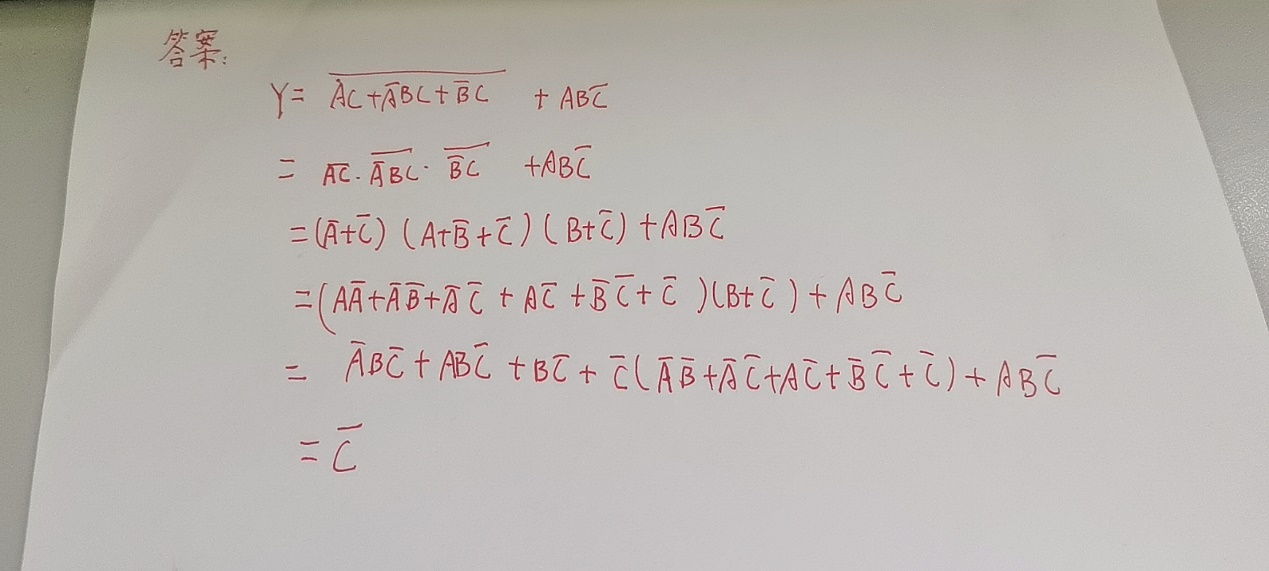 答案:
Y = \overline{AC + \overline{A}BC + \overline{B}C} + AB\overline{C}
= \overline{AC} · \overline{\overline{A}BC} · \overline{\overline{B}C} + AB\overline{C}
= (\overline{A}+\overline{C}) (A+\overline{B}+\overline{C}) (B+\overline{C}) + AB\overline{C}
= (A\overline{A}+\overline{A}\overline{B}+\overline{A}\overline{C} + A\overline{C} + \overline{B}\overline{C} + \overline{C})(B+\overline{C}) + AB\overline{C}
= \overline{A}B\overline{C} + AB\overline{C} + B\overline{C} + \overline{C}(\overline{A}\overline{B}+\overline{A}\overline{C}+A\overline{C}+\overline{B}\overline{C}+\overline{C}) + AB\overline{C}
= \overline{C}